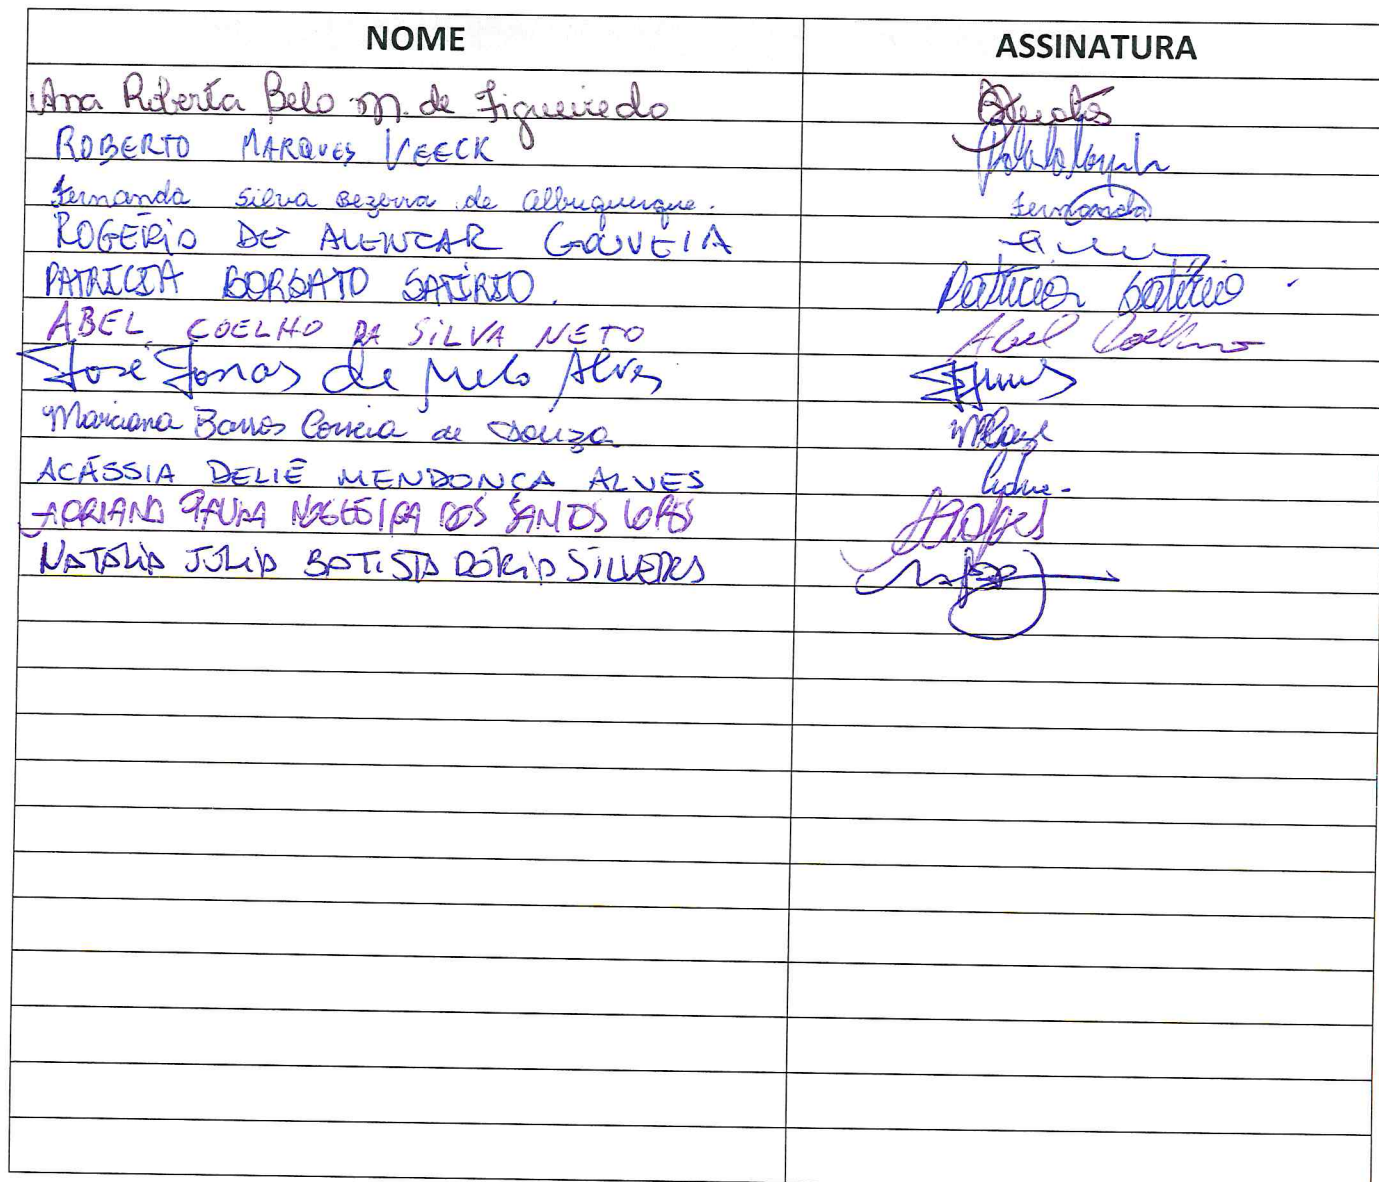 NOME ASSINATURA
Ana Roberta Belo M. de Figueiredo
ROBERTO MARQUES VEECK
Fernanda Silva Bezerra de Albuquerque. Fernanda
ROGÉRIO DE ALENCAR GOUVEIA
PATRICIA BORGATO SATÍRIO. Patricia Satírio
ABEL COELHO DA SILVA NETO Abel Coelho
José Jonas de Melo Alves
Mariana Barros Correia de Souza
ACÁSSIA DELIÊ MENDONÇA ALVES
ADRIANA PAULA DOS SANTOS LOPES
NATALIA JÚLIA BATISTA DÓRIA